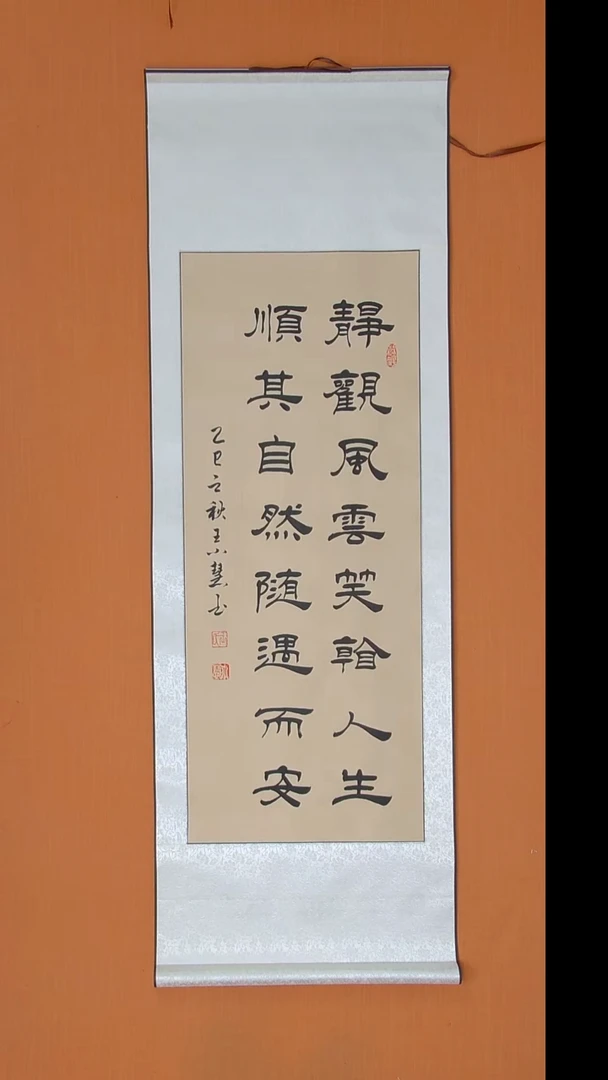 靜觀風雲笑䩞人生
順其自然随遇而安
乙巳立秋王小慧書